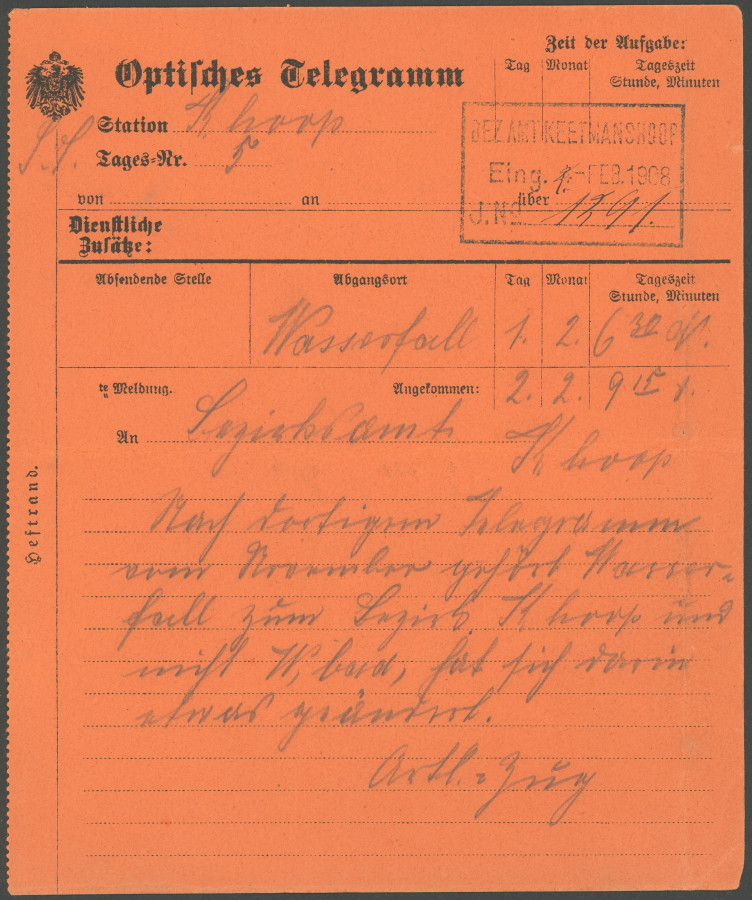 Zeit der Aufgabe:
Optisches Telegramm
Tag Monat Tageszeit
Stunde, Minuten
Station Khoop
S.S.
Tages-Nr. 5
BEZ AMT KEETMANSHOOP
Eing. -FEB. 1908
J. No 1591.
von an über
Dienstliche
Zusätze:
Absendende Stelle Abgangsort Tag Monat Tageszeit
Stunde, Minuten
Wasserfall 1. 2. 6 30
te Meldung. Angekommen: 2. 2. 9 15
An Bezirksamt
Khoop
Nach dortigem Telegramm
vom November gehört Wasser-
fall zum Bezirk Khoop und
nicht W, bad, hat sich darin
etwas geändert.
Artl.-Zug
Heftrand.